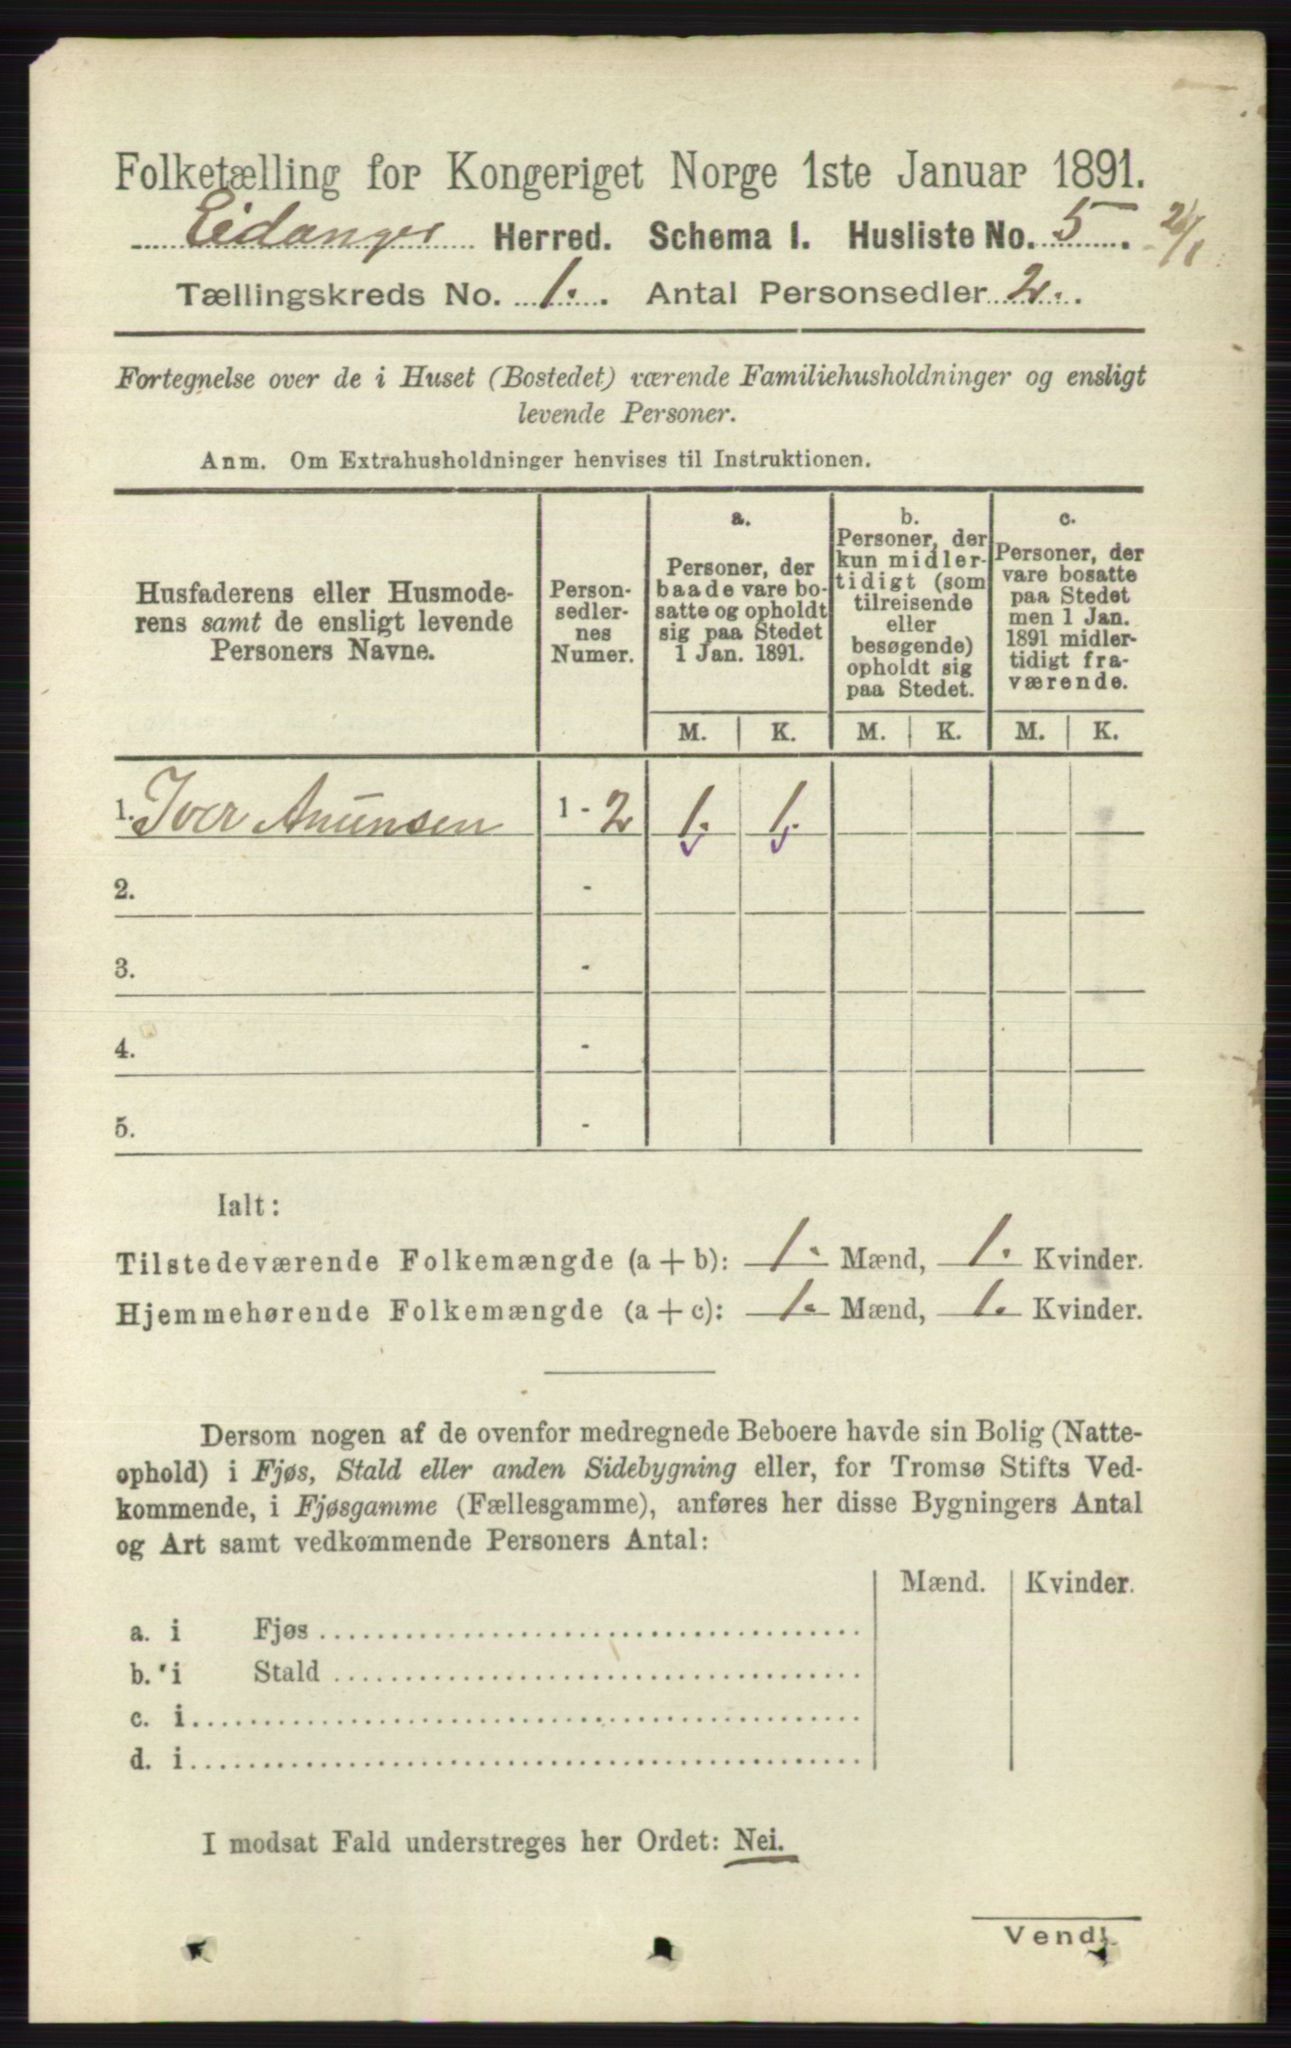 Folketælling for Kongeriget Norge 1ste Januar 1891.
Eidanger Herred. Schema I. Husliste No. 5. 2/1
Tællingskreds No. 1. Antal Personsedler 2.
Fortegnelse over de i Huset (Bostedet) værende Familiehusholdninger og ensligt
levende Personer.
Anm. Om Extrahusholdninger henvises til Instruktionen.
Husfaderens eller Husmode-
rens samt de ensligt levende
Personers Navne.
Person-
sedler-
nes
Numer.
a.
Personer, der
baade vare bo-
satte og opholdt
sig paa Stedet
1 Jan. 1891.
b.
Personer, der
kun midler-
tidigt (som
tilreisende
eller
besøgende)
opholdt sig
paa Stedet.
c.
Personer, der
vare bosatte
paa Stedet
men 1 Jan.
1891 midler-
tidigt fra-
værende.
M. K. M. K. M. K.
1. Iver Anunsen 1 - 2 1. 1.
2. -
3. -
4. -
5. -
Ialt:
Tilstedeværende Folkemængde (a + b): 1. Mænd, 1. Kvinder.
Hjemmehørende Folkemængde (a + c): 1. Mænd, 1. Kvinder.
Dersom nogen af de ovenfor medregnede Beboere havde sin Bolig (Natte-
ophold) i Fjøs, Stald eller anden Sidebygning eller, for Tromsø Stifts Ved-
kommende, i Fjøsgamme (Fællesgamme), anføres her disse Bygningers Antal
og Art samt vedkommende Personers Antal:
Mænd. Kvinder.
a. i Fjøs
b. i Stald
c. i
d. i
I modsat Fald understreges her Ordet: Nei.
Vend!